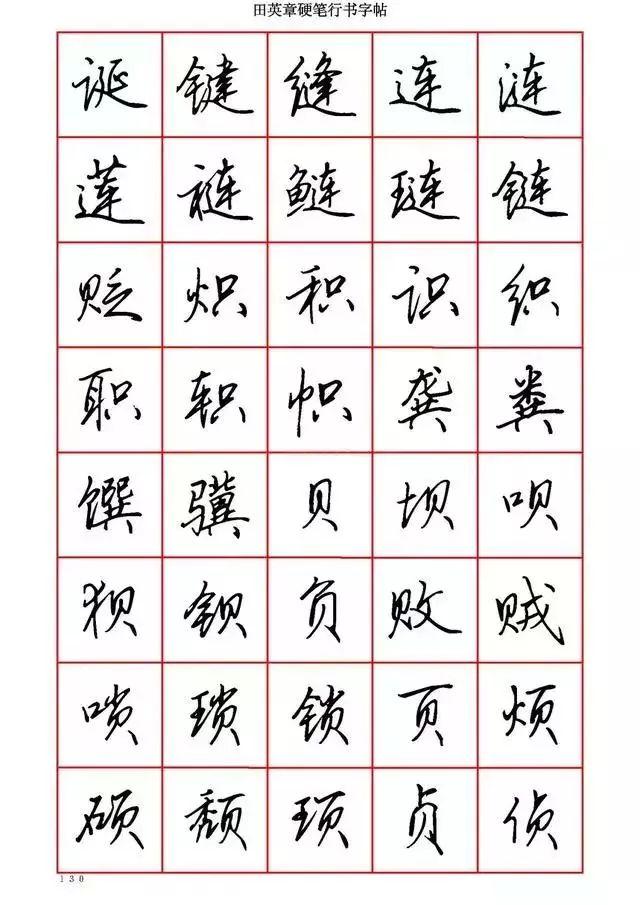 田英章硬笔行书字帖
诞 键 缝 连 涟
莲 裢 鲢 琏 链
贬 炽 积 识 织
职 轵 帜 龚 粪
馔 骥 贝 坝 呗
狈 钡 负 败 贼
唢 琐 锁 页 烦
硕 颓 顼 贞 侦
130